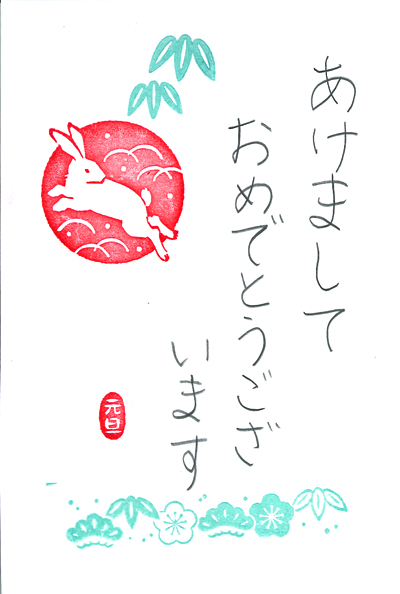 あけまして
おめでとうござ
います
元旦